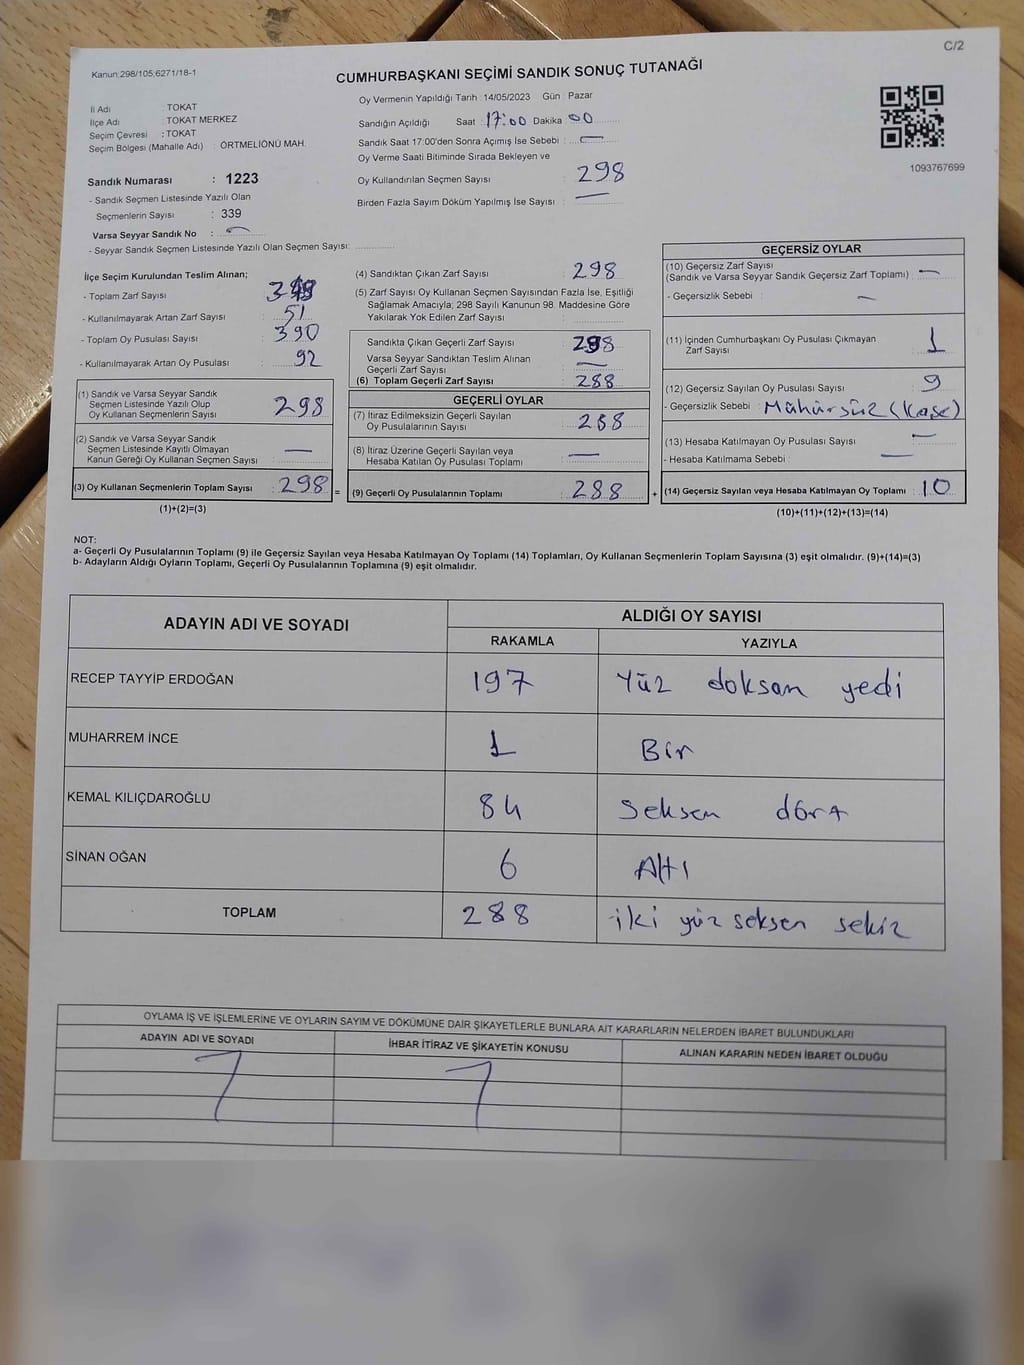 C/2
Kanun:298/105;6271/18-1
CUMHURBAŞKANI SEÇİMİ SANDIK SONUÇ TUTANAĞI
İl Adı : TOKAT
İlçe Adı : TOKAT MERKEZ
Seçim Çevresi : TOKAT
Seçim Bölgesi (Mahalle Adı) : ÖRTMELİÖNÜ MAH.
Oy Vermenin Yapıldığı Tarih :14/05/2023 Gün : Pazar
Sandığın Açıldığı Saat : 17:00 Dakika 00
Sandık Saat 17:00'den Sonra Açımış İse Sebebi : —
Oy Verme Saati Bitiminde Sırada Bekleyen ve
Oy Kullandırılan Seçmen Sayısı : 298
Birden Fazla Sayım Döküm Yapılmış İse Sayısı : —
1093767699
Sandık Numarası : 1223
- Sandık Seçmen Listesinde Yazılı Olan
Seçmenlerin Sayısı : 339
Varsa Seyyar Sandık No : —
- Seyyar Sandık Seçmen Listesinde Yazılı Olan Seçmen Sayısı:
İlçe Seçim Kurulundan Teslim Alınan;
- Toplam Zarf Sayısı :
- Kullanılmayarak Artan Zarf Sayısı : 51
- Toplam Oy Pusulası Sayısı : 390
- Kullanılmayarak Artan Oy Pusulası : 92
(1) Sandık ve Varsa Seyyar Sandık
Seçmen Listesinde Yazılı Olup
Oy Kullanan Seçmenlerin Sayısı : 298
(2) Sandık ve Varsa Seyyar Sandık
Seçmen Listesinde Kayıtlı Olmayan
Kanun Gereği Oy Kullanan Seçmen Sayısı : —
(3) Oy Kullanan Seçmenlerin Toplam Sayısı : 298 =
(1)+(2)=(3)
(4) Sandıktan Çıkan Zarf Sayısı : 298
(5) Zarf Sayısı Oy Kullanan Seçmen Sayısından Fazla İse, Eşitliği
Sağlamak Amacıyla; 298 Sayılı Kanunun 98. Maddesine Göre
Yakılarak Yok Edilen Zarf Sayısı :
Sandıkta Çıkan Geçerli Zarf Sayısı : 298
Varsa Seyyar Sandıktan Teslim Alınan
Geçerli Zarf Sayısı : —
(6) Toplam Geçerli Zarf Sayısı : 288
GEÇERLİ OYLAR
(7) İtiraz Edilmeksizin Geçerli Sayılan
Oy Pusulalarının Sayısı : 288
(8) İtiraz Üzerine Geçerli Sayılan veya
Hesaba Katılan Oy Pusulası Toplamı : —
(9) Geçerli Oy Pusulalarının Toplamı : 288 +
GEÇERSİZ OYLAR
(10) Geçersiz Zarf Sayısı
(Sandık ve Varsa Seyyar Sandık Geçersiz Zarf Toplamı) : —
- Geçersizlik Sebebi : —
(11) İçinden Cumhurbaşkanı Oy Pusulası Çıkmayan
Zarf Sayısı : 1
(12) Geçersiz Sayılan Oy Pusulası Sayısı : 9
- Geçersizlik Sebebi : Mühürsüz (Kaşe)
(13) Hesaba Katılmayan Oy Pusulası Sayısı : —
- Hesaba Katılmama Sebebi : —
(14) Geçersiz Sayılan veya Hesaba Katılmayan Oy Toplamı : 10
(10)+(11)+(12)+(13)=(14)
NOT:
a- Geçerli Oy Pusulalarının Toplamı (9) ile Geçersiz Sayılan veya Hesaba Katılmayan Oy Toplamı (14) Toplamları, Oy Kullanan Seçmenlerin Toplam Sayısına (3) eşit olmalıdır. (9)+(14)=(3)
b- Adayların Aldığı Oyların Toplamı, Geçerli Oy Pusulalarının Toplamına (9) eşit olmalıdır.
ADAYIN ADI VE SOYADI
ALDIĞI OY SAYISI
RAKAMLA YAZIYLA
RECEP TAYYİP ERDOĞAN 197 Yüz doksan yedi
MUHARREM İNCE 1 Bir
KEMAL KILIÇDAROĞLU 84 Seksen dört
SİNAN OĞAN 6 Altı
TOPLAM 288 iki yüz seksen sekiz
OYLAMA İŞ VE İŞLEMLERİNE VE OYLARIN SAYIM VE DÖKÜMÜNE DAİR ŞİKAYETLERLE BUNLARA AİT KARARLARIN NELERDEN İBARET BULUNDUKLARI
ADAYIN ADI VE SOYADI İHBAR İTİRAZ VE ŞİKAYETİN KONUSU ALINAN KARARIN NEDEN İBARET OLDUĞU